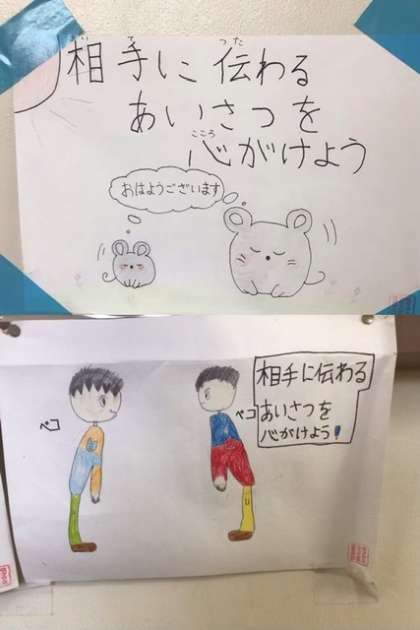 相手に伝わる
あいさつを
心がけよう
おはようございます
ペコ
ペコ
相手に伝わる
あいさつを
心がけよう!